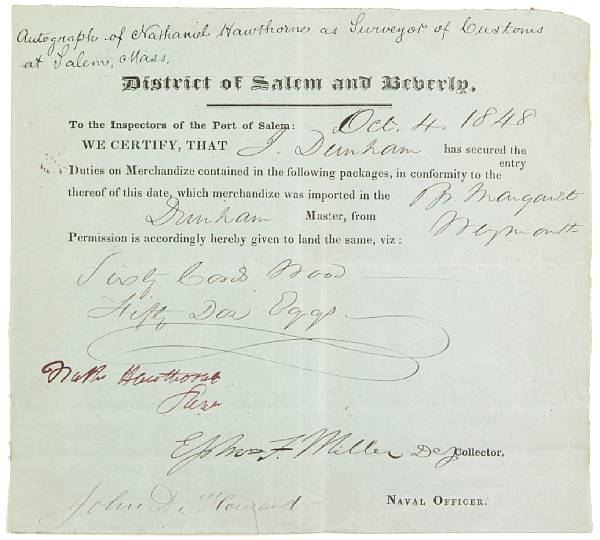 Autograph of Nathaniel Hawthorne as Surveyor of Customs
at Salem, Mass.
District of Salem and Beverly.
To the Inspectors of the Port of Salem: Oct. 4. 1848
WE CERTIFY, THAT J. Dunham has secured the
entry
Duties on Merchandize contained in the following packages, in conformity to the
thereof of this date, which merchandize was imported in the Br. Margaret
Dunham Master, from Weymouth
Permission is accordingly hereby given to land the same, viz:
Sixty Cords Wood
Fifty Doz Eggs
Nath Hawthorne
Surv
Ephm F. Miller Dep Collector.
John D. Howard NAVAL OFFICER.